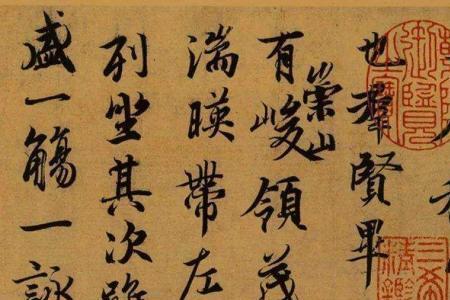 也羣賢畢
有崇山峻領茂
湍暎帶左
列坐其次雖
盛一觴一詠